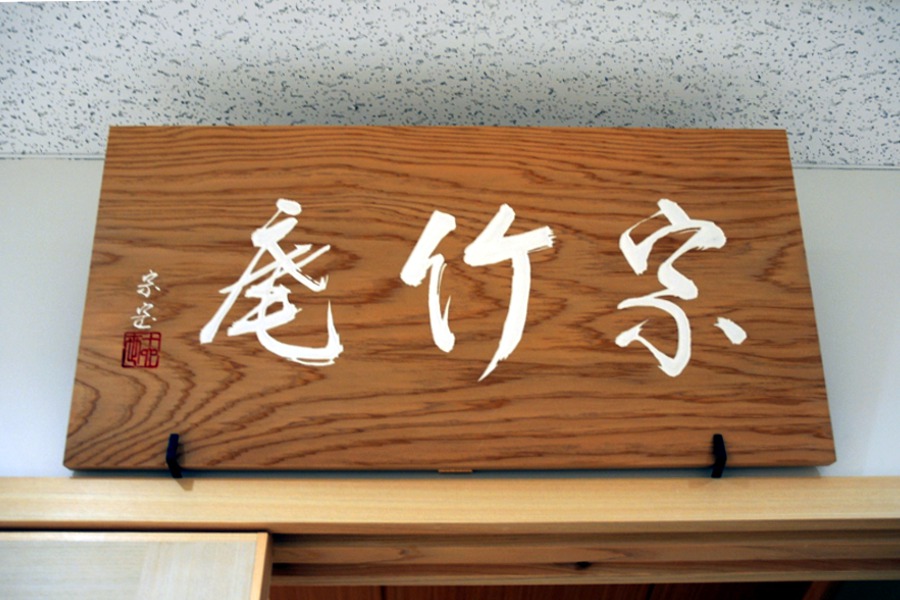 宗竹庵
宗室